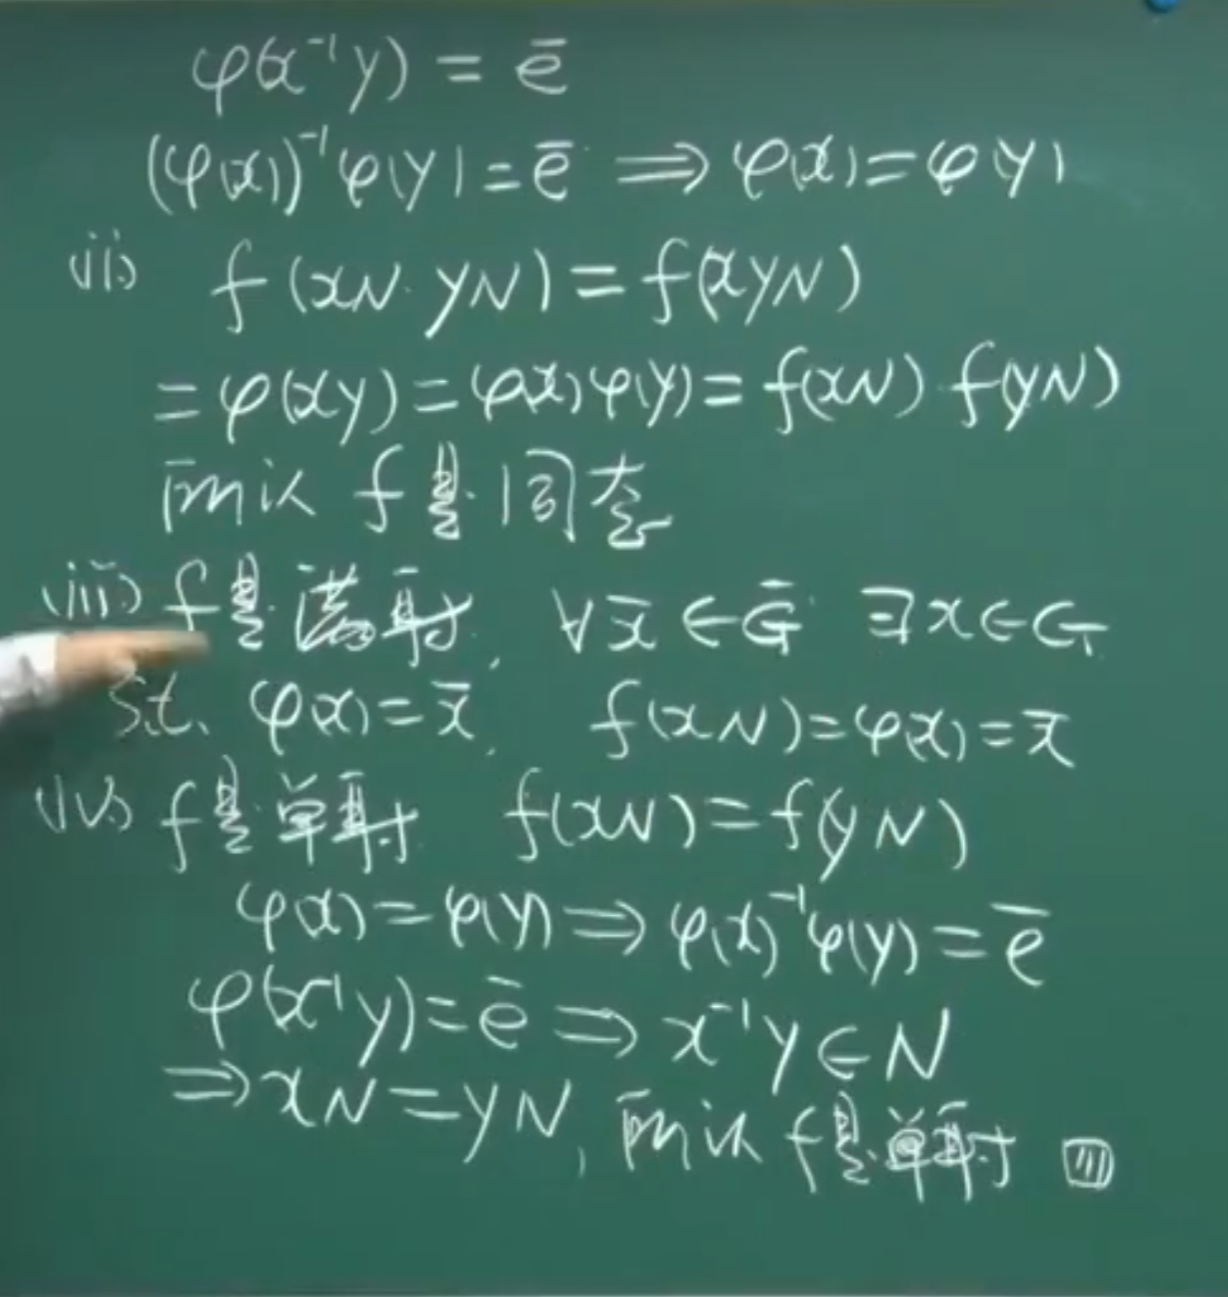 φ(x⁻¹y) = ē
(φ(x))⁻¹φ(y) = ē ⟹ φ(x) = φ(y)
(ii) f(xN·yN) = f(xyN)
= φ(xy) = φ(x)φ(y) = f(xN)·f(yN)
所以 f是同态
(iii) f是满射, ∀x̄∈Ḡ ∃x∈G
s.t. φ(x) = x̄, f(xN) = φ(x) = x̄
(iv) f是单射 f(xN) = f(yN)
φ(x) = φ(y) ⟹ φ(x)⁻¹φ(y) = ē
φ(x⁻¹y) = ē ⟹ x⁻¹y∈N
⟹ xN = yN, 所以 f是单射